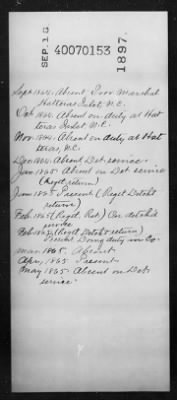 SEP. 10
40070153
1897.
Sept 1864. Absent Prov Marshal
Hatteras Inlet, N.C.
Oct 1864. Absent on duty at Hat
teras Inlet N.C.
Nov 1864. Absent on duty at Hat
teras, N.C.
Dec 1864. Absent Det. service.
Jan 1865. Absent on Det. service
(Regtl return)
Jan 1865 Present (Regtl Detcht
return)
Feb. 1865 (Regtl. Ret) On detch'd
service
Feb. 1865 (Regtl Detcht return)
Present Doing duty in Co.
Mar. 1865. Absent.
Apr. 1865 Present
May 1865. Absent on Det.
service.